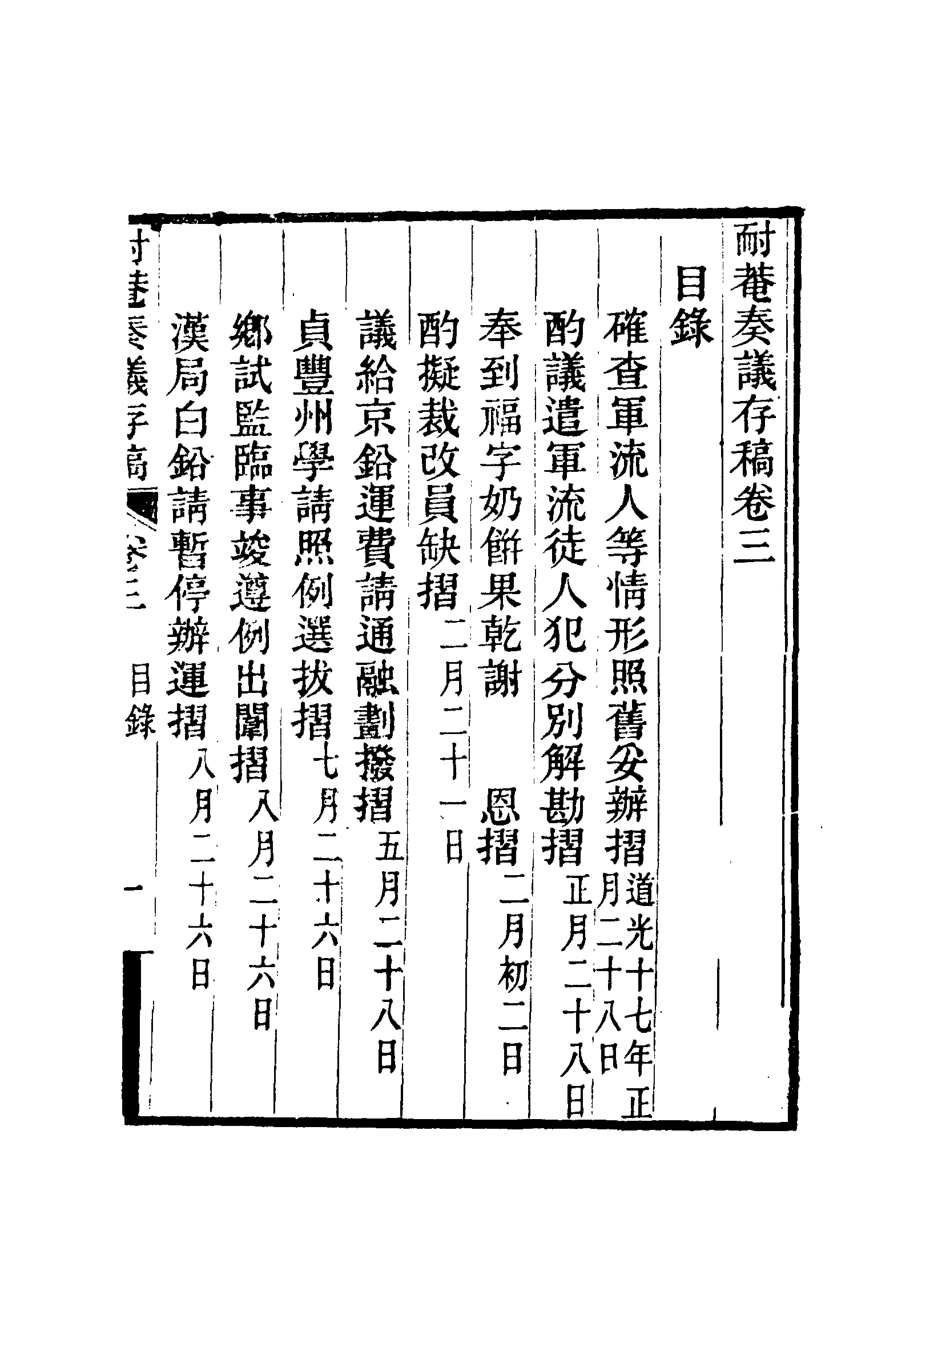 耐菴奏議存稿卷三
目錄
確查軍流人等情形照舊妥辦摺道光十七年正月二十八日
酌議遣軍流徒人犯分別解勘摺正月二十八日
奉到福字奶餅果乾謝　恩摺二月初二日
酌擬裁改員缺摺二月二十一日
議給京鉛運費請通融劃撥摺五月二十八日
貞豐州學請照例選拔摺七月二十六日
鄉試監臨事竣遵例出闈摺八月二十六日
漢局白鉛請暫停辦運摺八月二十六日
耐菴奏議存稿　卷三　目錄　一